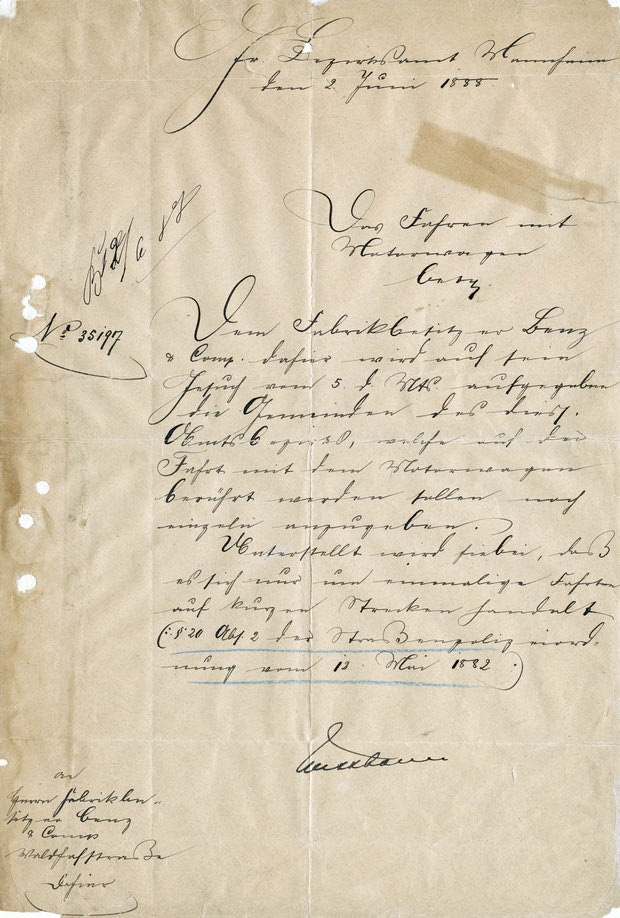 Gr. Bezirksamt Mannheim
den 2. Juni 1888.
Das Fahren mit
Motorwagen
betr.
No 35197
Dem Fabrikbesitzer Benz
& Comp. dahier wird auf sein
Gesuch vom 5. d. Mts. aufgegeben
die Gemeinden des diess.
Amtsbezirks, welche auf der
Fahrt mit dem Motorwagen
berührt werden sollen noch
einzeln anzugeben.
Unterstellt wird hiebei, daß
es sich nur um einmalige Fahrten
auf kurzen Strecken handelt
(:§ 20 Abs. 2 der Straßenpolizeiord-
nung vom 12. Mai 1882).
an
Herrn Fabrikbe-
sitzer Benz
& Comp
Waldhofstraße
Dahier